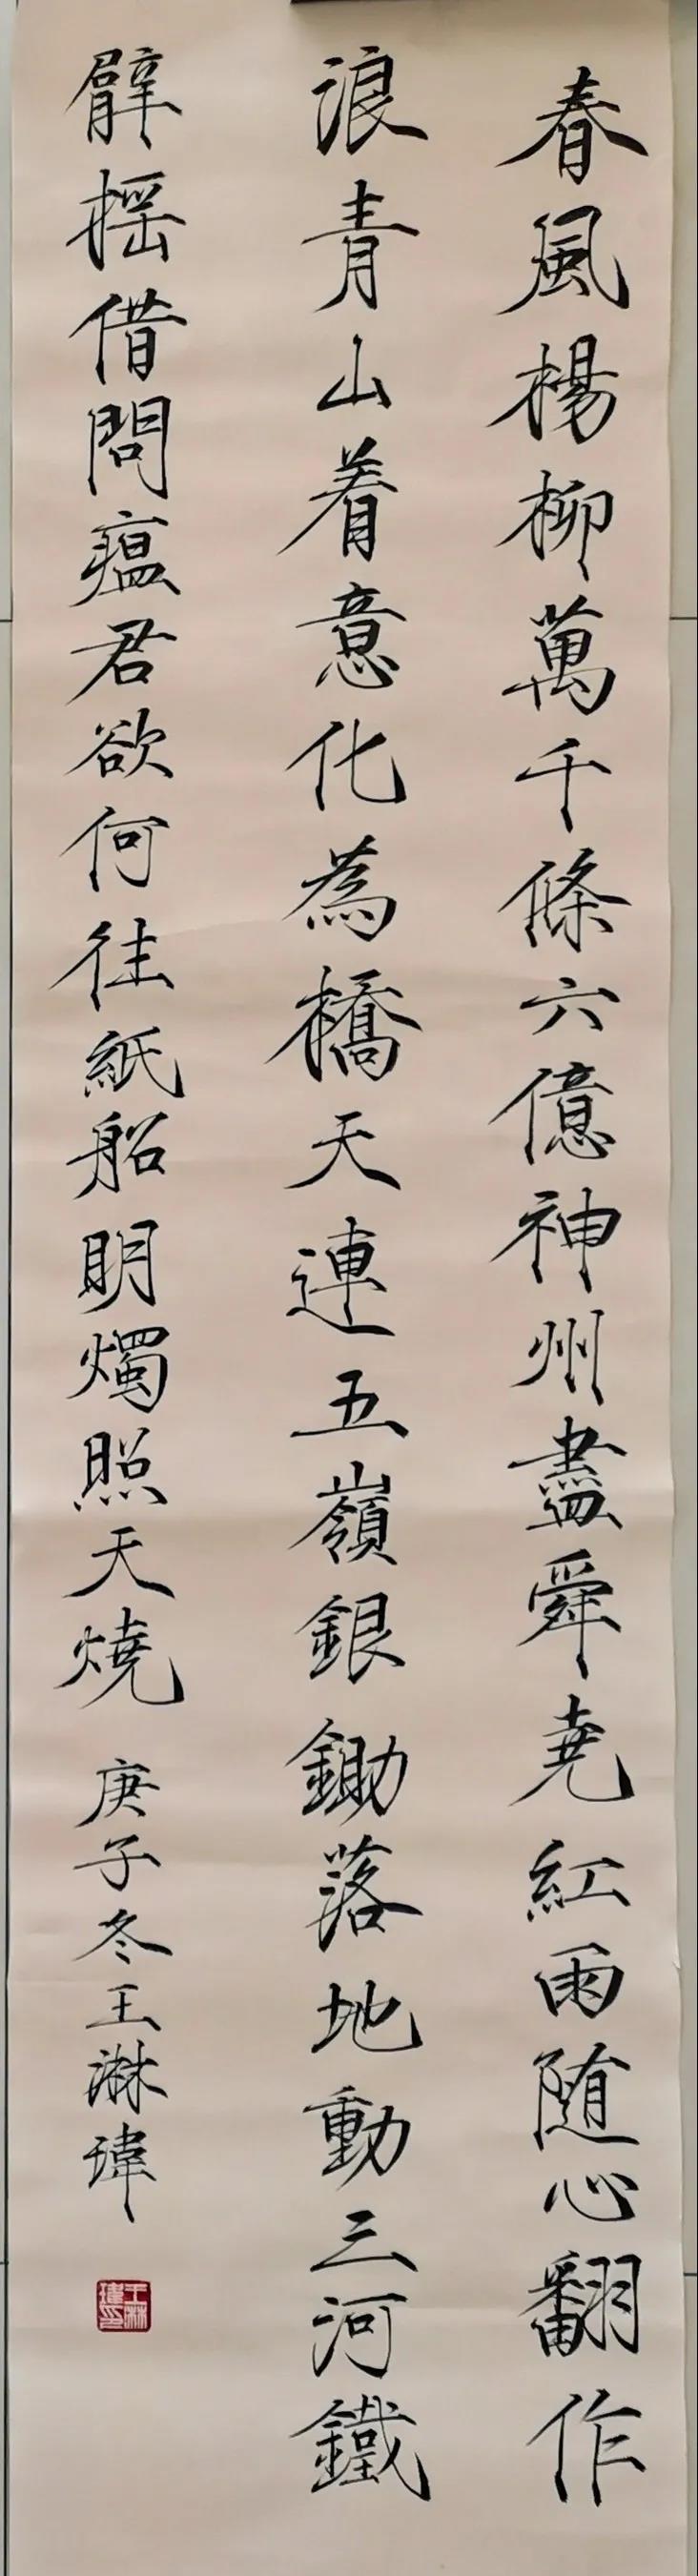 春風楊柳萬千條六億神州盡舜尭紅雨随心翻作
浪青山着意化為橋天連五嶺銀鋤落地動三河鐵
臂摇借問瘟君欲何往紙船明燭照天燒
庚子冬王淋瑋